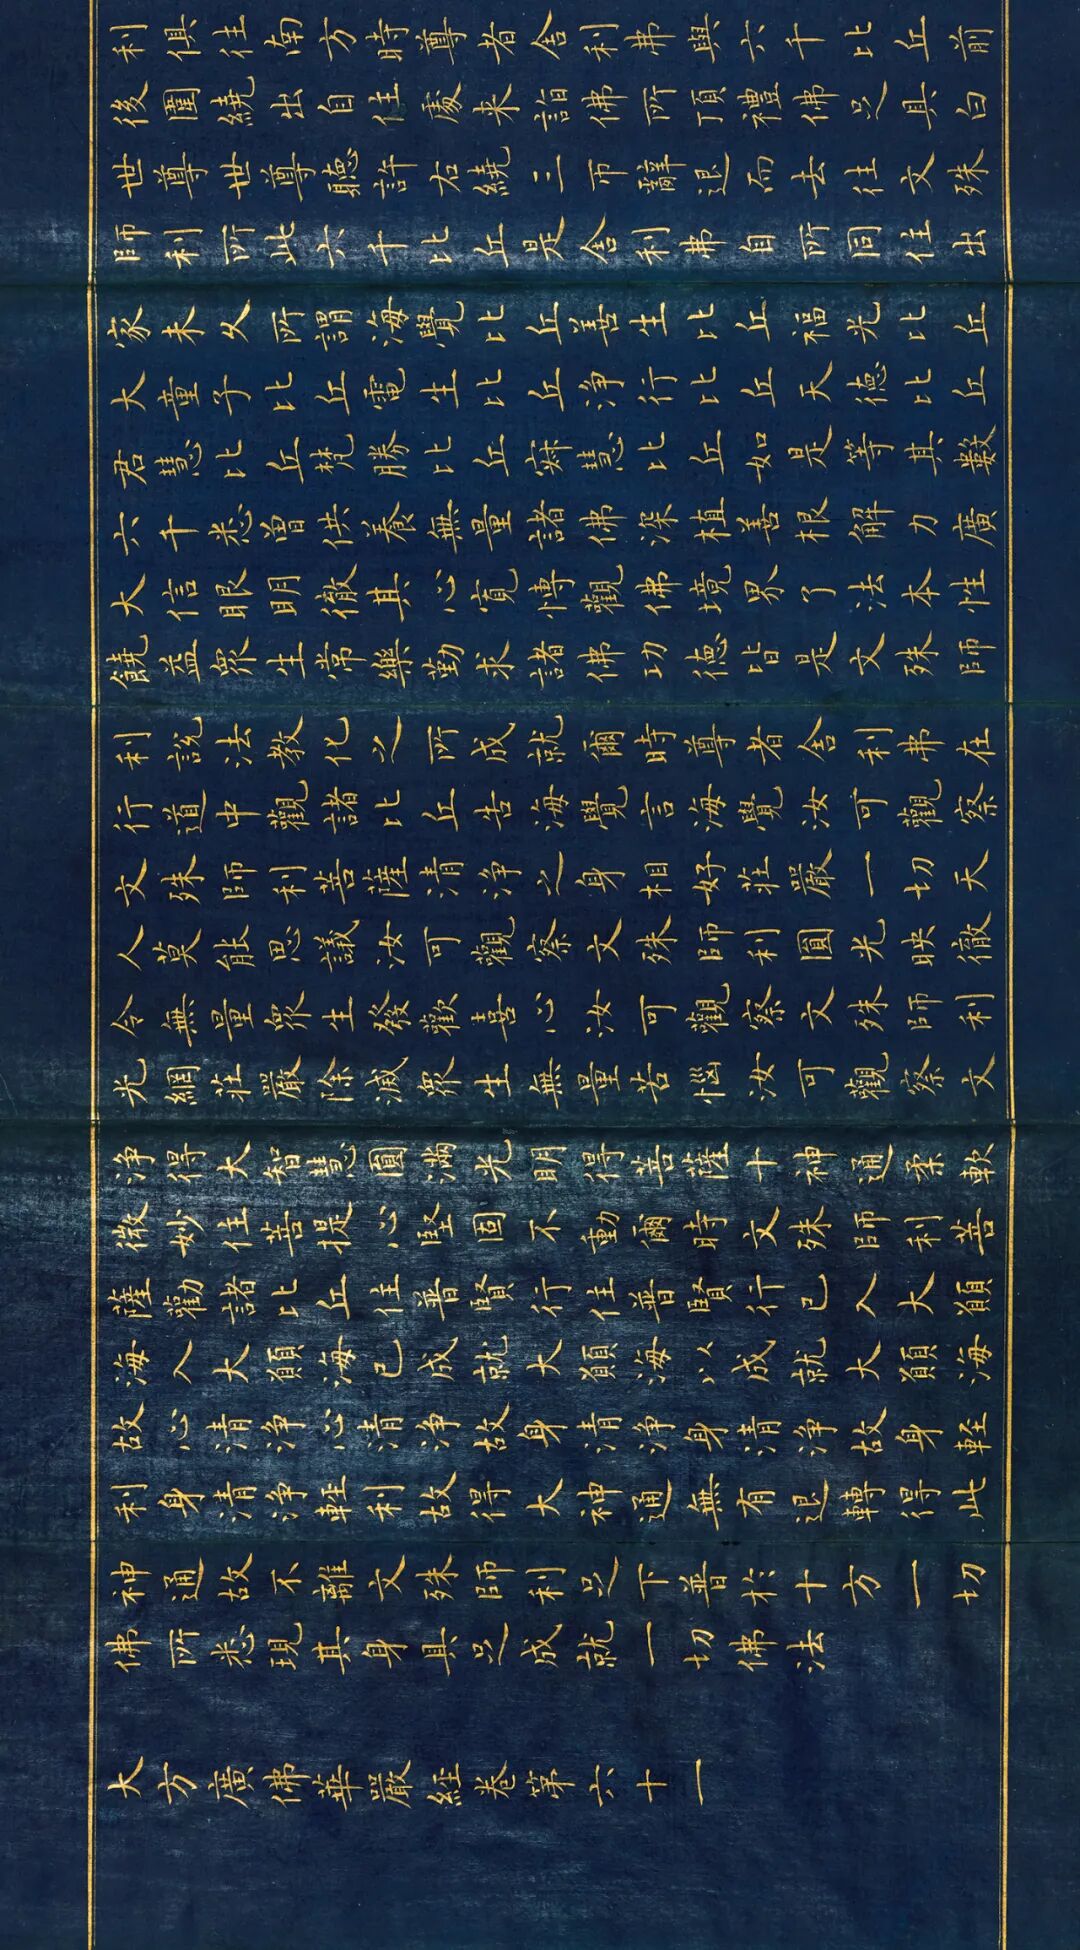 利俱往南方時尊者舍利弗與六千比丘前
後圍繞出自住處来詣佛所頂禮佛足具白
世尊世尊聽許右繞三帀辭退而去往文殊
師利所此六千比丘是舍利弗自所同住出
家未久所謂海覺比丘善生比丘福光比丘
大童子比丘電生比丘淨行比丘天德比丘
君慧比丘梵勝比丘寂慧比丘如是等其數
六千悉曽供養無量諸佛深植善根解力廣
大信眼明徹其心寬博觀佛境界了法本性
饒益眾生常樂勤求諸佛功德皆是文殊師
利說法教化之所成就爾時尊者舍利弗在
行道中觀諸比丘告海覺言海覺汝可觀察
文殊師利菩薩清淨之身相好莊嚴一切天
人莫能思議汝可觀察文殊師利圓光映徹
令無量眾生發歡喜心汝可觀察文殊師利
光網莊嚴除滅眾生無量苦惱汝可觀察文
淨得大智慧圓滿光明得菩薩十神通柔軟
微妙住菩提心堅固不動爾時文殊師利菩
薩勸諸比丘住普賢行住普賢行已入大願
海入大願海已成就大願海以成就大願海
故心清淨心清淨故身清淨身清淨故身輕
利身清淨輕利故得大神通無有退轉得此
神通故不離文殊師利足下普於十方一切
佛所悉現其身具足成就一切佛法
大方廣佛華嚴經卷第六十一